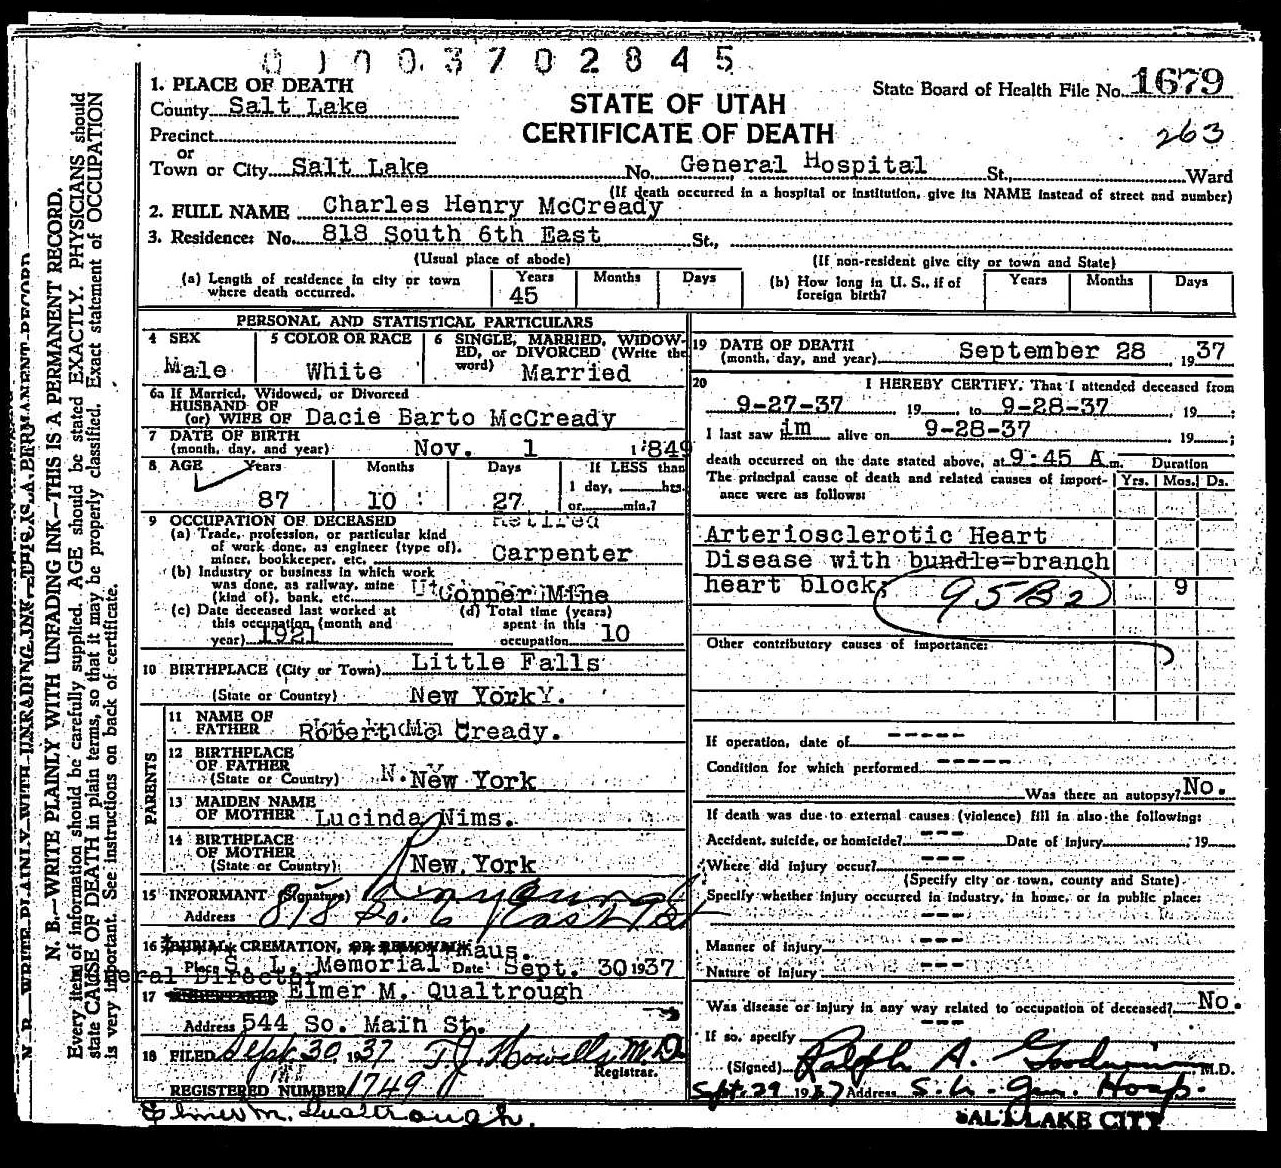 01003702845
1. PLACE OF DEATH
County Salt Lake
Precinct
or
Town or City Salt Lake No. General Hospital St., Ward
STATE OF UTAH
CERTIFICATE OF DEATH
State Board of Health File No. 1679
263
(If death occurred in a hospital or institution, give its NAME instead of street and number)
2. FULL NAME Charles Henry McCready
3. Residence: No. 818 South 6th East St.,
(Usual place of abode) (If non-resident give city or town and State)
(a) Length of residence in city or town where death occurred. Years 45 Months Days
(b) How long in U. S., if of foreign birth? Years Months Days
PERSONAL AND STATISTICAL PARTICULARS
4 SEX Male
5 COLOR OR RACE White
6 SINGLE, MARRIED, WIDOWED, or DIVORCED (Write the word) Married
6a If Married, Widowed, or Divorced
HUSBAND OF
(or) WIFE OF Dacie Barto McCready
7 DATE OF BIRTH
(month, day, and year) Nov. 1 1849
8 AGE Years 87 Months 10 Days 27 If LESS than 1 day, hrs. or min.?
9 OCCUPATION OF DECEASED Retired
(a) Trade, profession, or particular kind
of work done, as engineer (type of),
miner, bookkeeper, etc. Carpenter
(b) Industry or business in which work
was done, as railway, mine
(kind of), bank, etc. Ut Copper Mine
(c) Date deceased last worked at
this occupation (month and
year) 1921
(d) Total time (years)
spent in this
occupation 10
10 BIRTHPLACE (City or Town) Little Falls
(State or Country) New York Y.
PARENTS
11 NAME OF
FATHER Robert Mc Cready.
12 BIRTHPLACE
OF FATHER
(State or Country) N. Y. New York
13 MAIDEN NAME
OF MOTHER Lucinda Nims.
14 BIRTHPLACE
OF MOTHER
(State or Country) New York
15 INFORMANT (Signature)
Address 818 So. 6 East St
16 BURIAL, CREMATION, OR REMOVAL Maus.
Place S. L. Memorial Date Sept. 30 1937
eral Director
17 UNDERTAKER Elmer M. Qualtrough
Address 544 So. Main St.
18 FILED Sept 30 1937 T. J. Howells M.D.
Registrar.
REGISTERED NUMBER 1749
Elmer M. Qualtrough.
19 DATE OF DEATH
(month, day, and year) September 28 1937
20 I HEREBY CERTIFY, That I attended deceased from
9-27-37 19 , to 9-28-37 , 19 ;
I last saw im alive on 9-28-37 19 ;
death occurred on the date stated above, at 9:45 A m. Duration
The principal cause of death and related causes of importance were as follows: Yrs. Mos. Ds.
Arteriosclerotic Heart
Disease with bundle-branch
heart block; 9
95B2
Other contributory causes of importance:
If operation, date of -----
Condition for which performed -----
Was there an autopsy? No.
If death was due to external causes (violence) fill in also the following:
Accident, suicide, or homicide? --- Date of injury 19
Where did injury occur? ---
(Specify city or town, county and State)
Specify whether injury occurred in industry, in home, or in public place:
---
Manner of injury ---
Nature of injury ---
Was disease or injury in any way related to occupation of deceased? No.
If so, specify ---
(Signed) Ralph A. Goodwin M.D.
Sept. 29 1937 Address S. L. Gen. Hosp.
SALT LAKE CITY
N. B.—WRITE PLAINLY WITH UNFADING INK—THIS IS A PERMANENT RECORD.
Every item of information should be carefully supplied. AGE should be stated EXACTLY. PHYSICIANS should
state CAUSE OF DEATH in plain terms, so that it may be properly classified. Exact statement of OCCUPATION
is very important. See instructions on back of certificate.